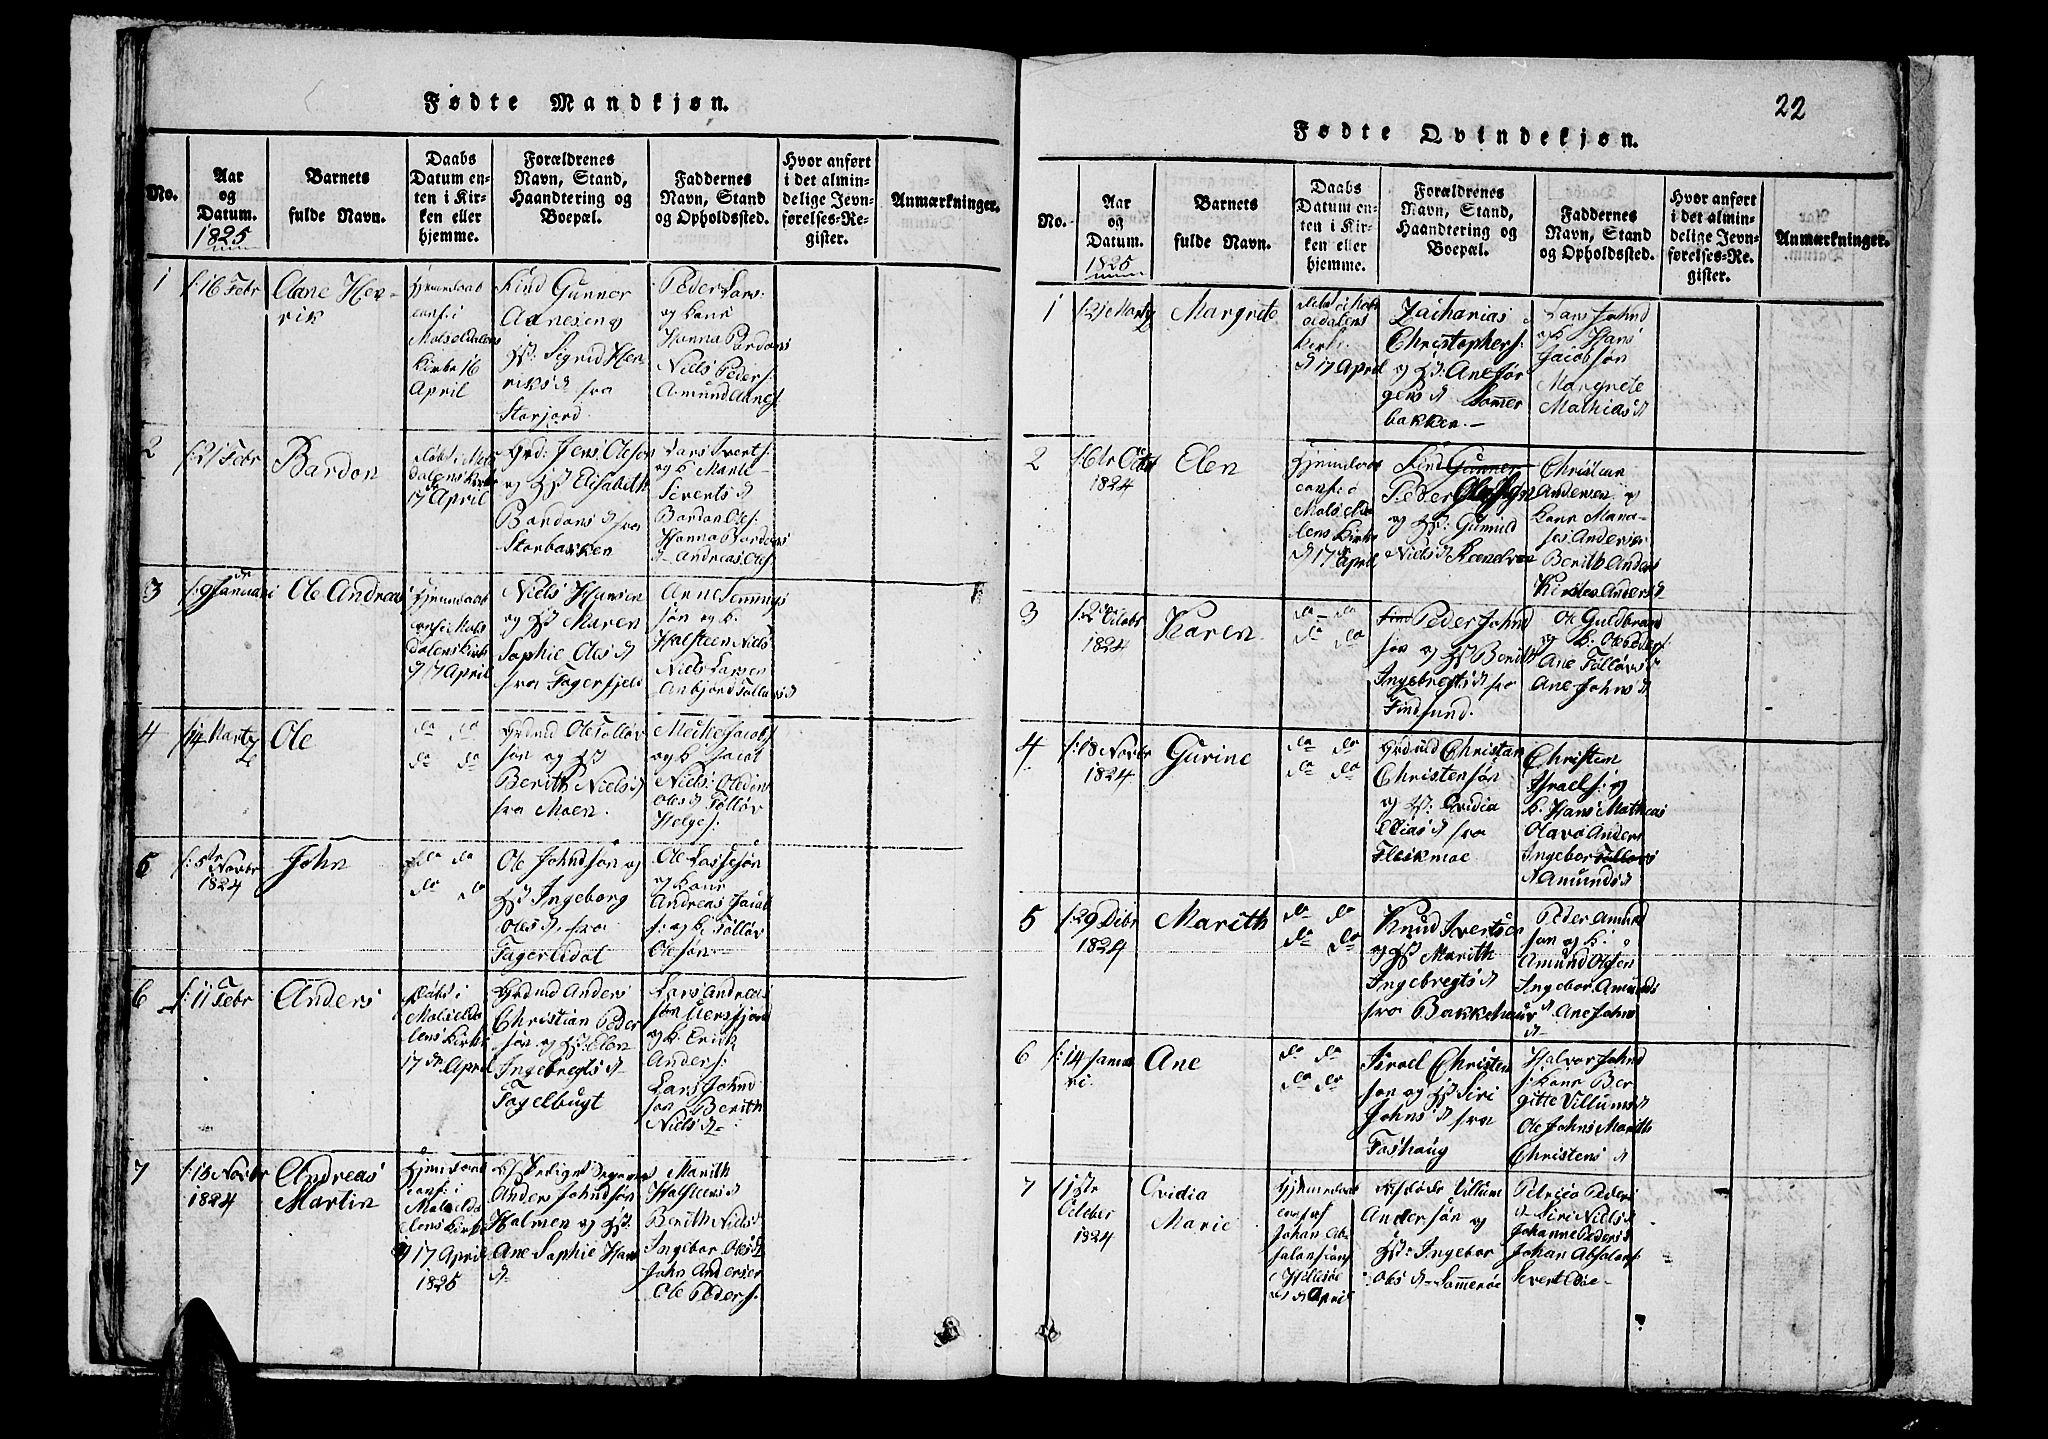 Fødte Mandkjøn.
No.
Aar
og
Datum.
1825
Barnets
fulde Navn.
Daabs
Datum en-
ten i Kir-
ken eller
hjemme.
Forældrenes
Navn, Stand,
Haandtering og
Boepæl.
Faddernes
Navn, Stand
og Opholdssted.
Hvor anført
i det almin-
delige Jevn-
førelses-Re-
gister.
Anmærkninger.
1
f: 16 Febr
Olane Hen-
rik
Hjemedaabt
conf: i
Maalselvdalens
Kirke 16
April
Gunner
Arnesen og
H: Sigrid Hen-
riks d fra
Storjord.
Peder Lars:
og Kone
Hanna Bardons
Niels Peders:
Amund Arnes:
2
f: 21 Febr
Bardon
Døbt i Mols
dalens Kirke
17 April
Jens Olesen
og H: Elisabeth
Bardons d fra
Storbakken
Lars Iverts:
og K Marte
Siverts d
Bardon Oles:
Hanna Bardons
d. Andreas Ols
3
f: 9de Januari
Ole Andreas
Hjemedaabt
conf: i Mols
dalens Kirke
d 17 April
Niels Hansen
og H: Maren
Sophie Oles d
fra Fagerfjeld
Arne Jemmings
søn og K.
Halsteen Niels
Niels Larsen
Anbjørd Tollevs d
4
f: 14 Martz
Ole
do do
do do
Ole Tollev
søn og H:
Berith Niels d
fra Moen.
Jacobs
og K Jacob
Niels: Ole
Oles d Tollev
Helges:
5
f: 5te Novbr
1824
John
do do
do do
Ole Johndsøn og
H: Ingeborg
Oles d. fra
Fagerlidal
Ole Lassesøn
og Kone
Andreas Jacob
s: og K. Tollev
Olesøn
6
f: 11 Febr
Anders
Døbt i
Molselvda
lens Kirke
17 de April
Anders
Christian Peder
søn og H: Elen
Ingebregts d
Fagelbugt
Lars Andreas
søn
og K. Erick
Anders:
Lars Johnd
søn Berith
Niels d
7
f: 13 Novbr
1824
Andreas
Martin
Hjemedaabt
conf: i
Molselvda
lens Kirke
d 17 April
1825
Anders Johndsøn
Holmen og H:
Ane Sophie Hans
d
Marith
Halsteens d
Berith Niels d
Ingebor Oles d
John Andersen
Ole Peders:
22
Fødte Qvindekjøn.
No.
Aar
og
Datum.
1825
Barnets
fulde Navn.
Daabs
Datum en-
ten i Kir-
ken eller
hjemme.
Forældrenes
Navn, Stand,
Haandtering og
Boepæl.
Faddernes
Navn, Stand
og Opholdssted.
Hvor anført
i det almin-
delige Jevn-
førelses-Re-
gister.
Anmærkninger.
1
f: 21 Martz
Margrete
Døbt i Mols
eldalens
Kirke
d 17 April
Zacharias
Christophers:
og H: Ane Jør
gens d Sommer
bakken.
Lars Johnd
og K Hans
Jacobsøn
Margrete
Mathias d
2
f: 6te Octbr
1824
Elen
Hjemedaabt
conf: i
Molselvda
lens Kirke
d 17 April
Gunner
Peder Olesøn
og H: Gunnild
Niels d
Christian
Andersen og
Kone Mari-
Anders
Berith Anders
Kirsten Anders d
3
f: 2den Octobr
1824
Karen
do do
do do
Peder Johnd
søn og H: Berith
Ingebregts d fra
Findsund.
Ole Guldbrand
og K. Ole Peders:
Ane Tollevs d
Ane Johns d
4
f: 18 Novbr
1824
Gurine
do do
do do
Christian
Christensøn
og H: Ovidia
Elias d fra
Fleskmoe
Christen
Israels: og
K. Hans Mathias
Olava Anders
Ingebor Tollevs
Amunds d
5
f: 29 Debr
1824
Marith
do do
do do
Knud Ivertsen
og H: Marith
Ingebregts d
fra Bakkehaug
Peder Amund
søn og K:
Amund Olesen
Ingebor Amunds
d. Ane Johns
d
6
f: 14 Janua
ri.
Ane
do do
do do
Israel Christen
søn og H: Siri
Johns d fra
Foshaug
Halvor Johnd
s: Kone Ber
gitte Villums d
Ole Johns Marith
Christens d
7
f 1ste
October
1824
Ovidia
Marie
Hjemedaabt
conf: af
Johan Ab
salonsen
i Hillesøe
d April
Villum
Andersøn og
H: Ingebor
Oles d Sommerøe
Petricia Peders
d Siri Niels d
Johanne Peders d
Johan Absalons:
Sivert